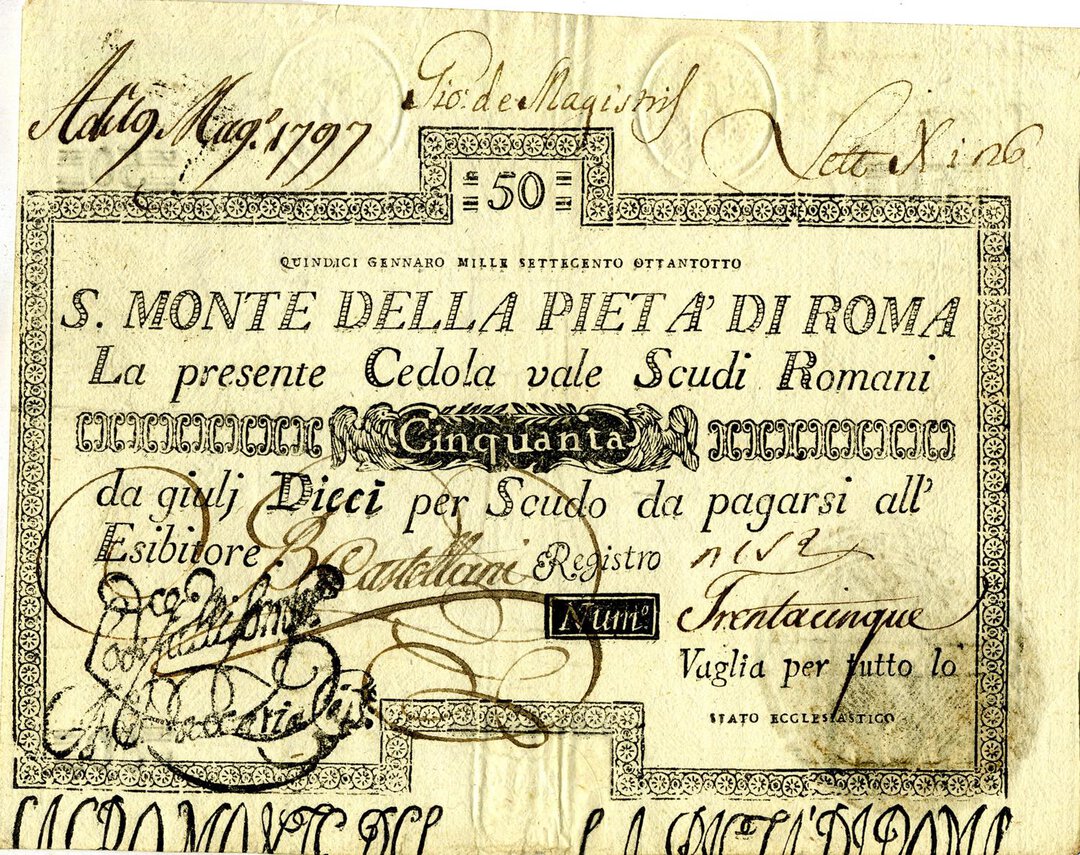 Adi 19 Mag.º 1797
Gio: de Magistris
50
QUINDICI GENNARO MILLE SETTECENTO OTTANTOTTO
S. MONTE DELLA PIETA' DI ROMA
La presente Cedola vale Scudi Romani
Cinquanta
da giulj Dieci per Scudo da pagarsi all'
Esibitore B Castellani Registro n 152
Num.º Trentacinque
Vaglia per tutto lo
STATO ECCLESIASTICO